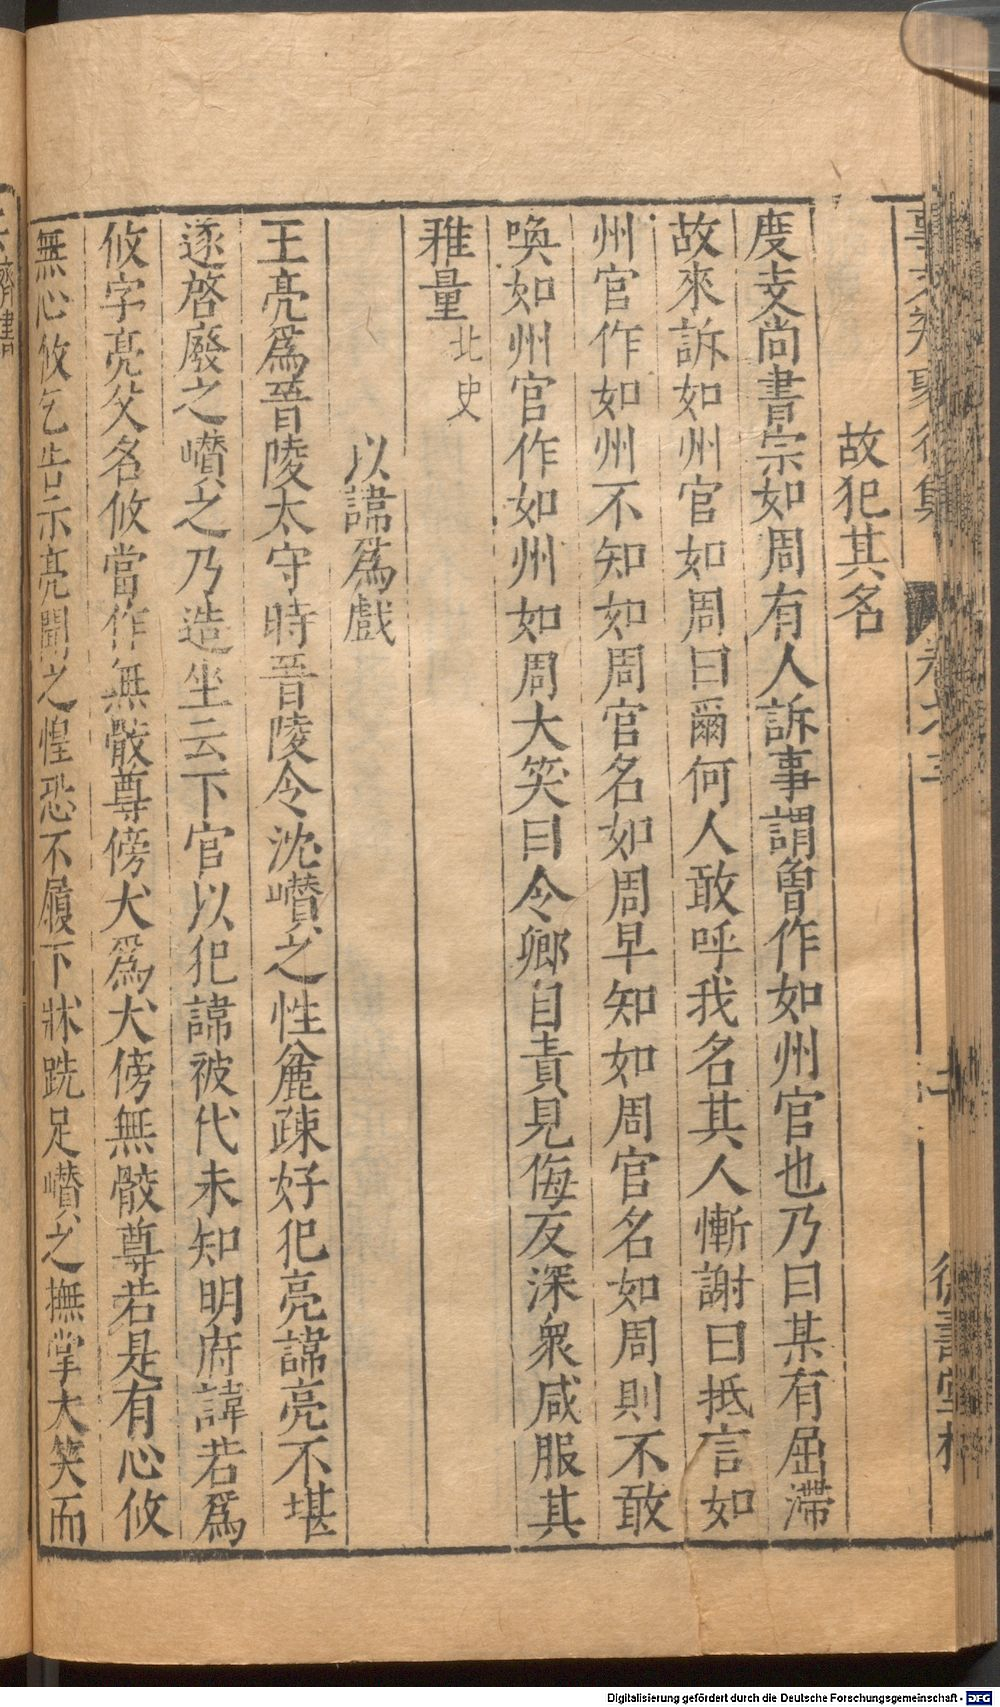 故犯其名
度支尚書宗如周有人訴事謂曾作如州官也乃曰某有屈滯
故來訴如州官如周曰爾何人敢呼我名其人慚謝曰抵言如
州官作如州不知如周官名如周早知如周官名如周則不敢
喚如州官作如州如周大笑曰令卿自責見侮反深衆咸服其
雅量北史
以諱爲戲
王亮爲晉陵太守時晉陵令沈巑之性麄疎好犯亮諱亮不堪
遂啓廢之巑之乃造坐云下官以犯諱被代未知明府諱若爲
攸字亮父名攸當作無骹尊傍犬爲犬傍無骹尊若是有心攸
無心攸乞告示亮聞之惶恐不履下牀跣足巑之撫掌大笑而
Digitalisierung gefördert durch die Deutsche Forschungsgemeinschaft - DFG